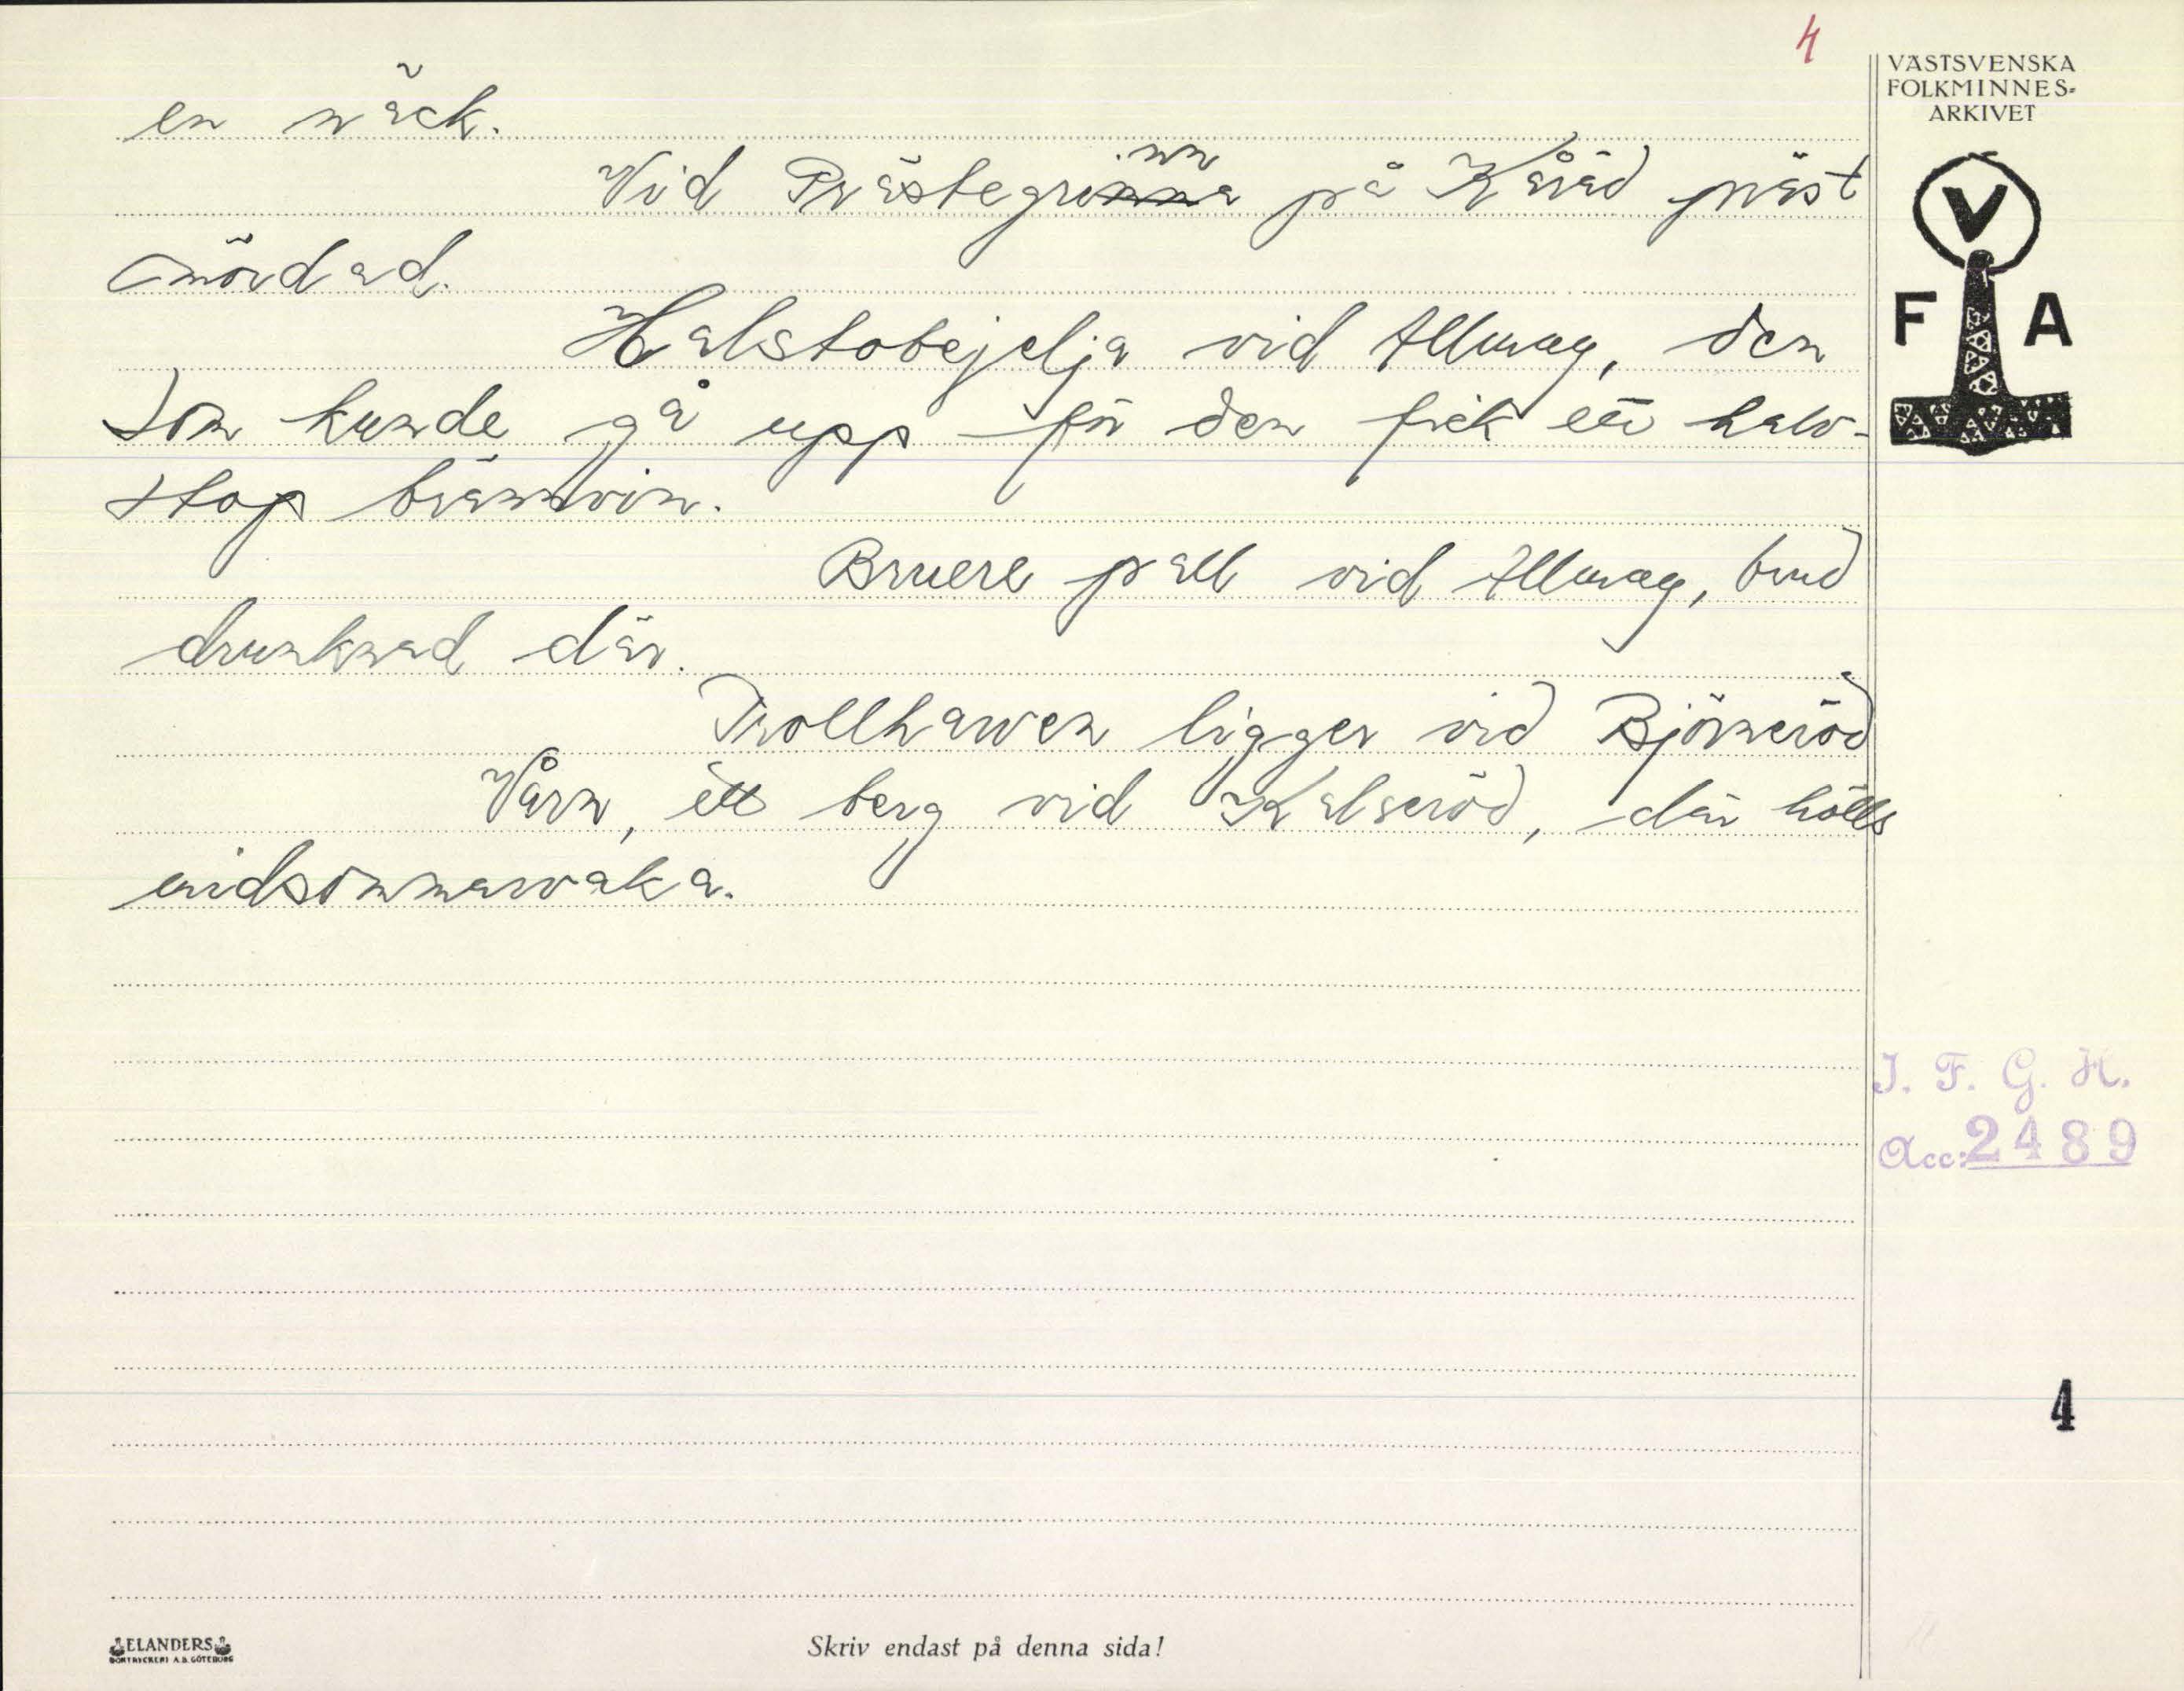 4
VÄSTSVENSKA
FOLKMINNES-
ARKIVET
en näck.
Vid Prästegrinna på Kåröd präst
mördad.
Halstobejelja vid Allmag, den
som kunde gå upp för den fick ett halv-
stop brännvin.
Bruere pall vid Allmag, brud
drunknad där.
Trollharven ligger vid Björneröd
Vårn, ett berg vid Kalseröd, där hölls
midsommarvaka.
V
F A
I. F. G. H.
Acc: 2489
4
ELANDERS
BOKTRYCKERI A.B. GÖTEBORG
Skriv endast på denna sida!